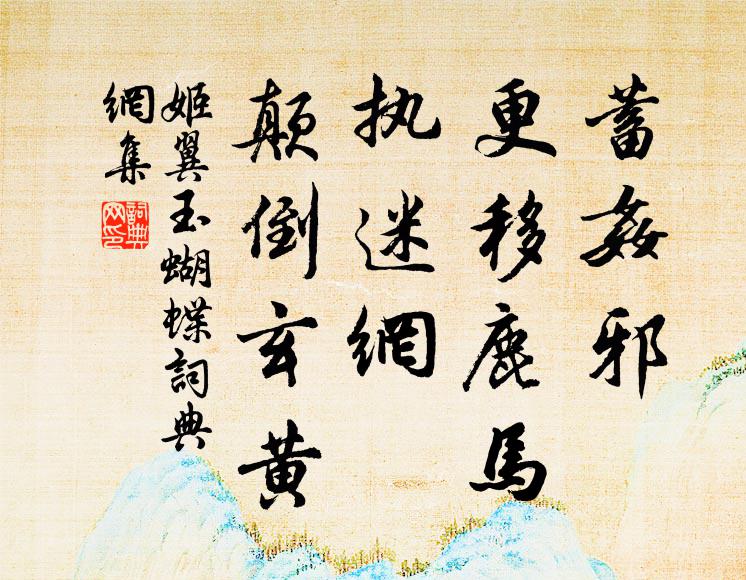 蓄姦邪
更移鹿馬
执迷網
顛倒玄黄
姬翼玉蝴蝶詞典
網集
詞典
网印